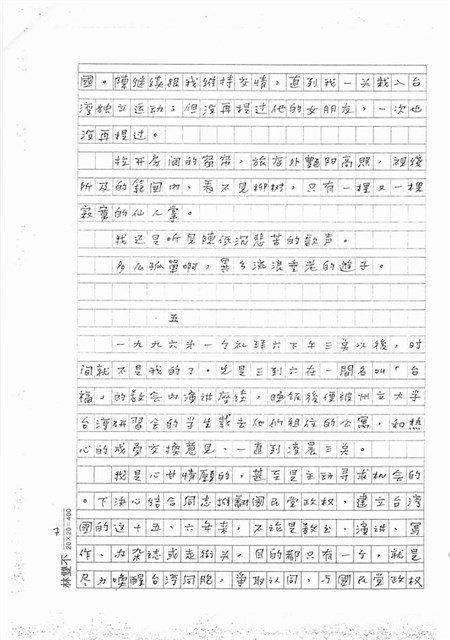 國。陳繼續跟我維持交情，直到我一头栽入台
湾独立运动，但没再提过他的女朋友，一次也
没再提过。
拉开房间的窗帘，旅店外艷阳高照，視线
所及的範囲内，看不見柳树，只有一棵又一棵
寂寞的仙人掌。
我还是听見陳低沉悲苦的歌声。
多么孤單啊，異乡流浪垂老的遊子。
五
一九九六年一个礼拜六下午三莫以後，时
间就不是我的了。先是三到六在一間名叫「台
福」的教会内演讲座谈，晚饭後便被州立大学
台湾研習会的学生載去他们租住的公寓，和热
心的成员交换意見，一直到凌晨三莫。
我是心甘情願的，甚至是主动尋求机会的
。下决心結合同志
國民党政权，建立台湾
國的这十五、六年来，不论是教书、演讲、寫
作、办杂志或走街头，目的都只有一个，就是
尽力喚醒台湾同胞，争取认同，
國民党政权
林雙不
20×20=400